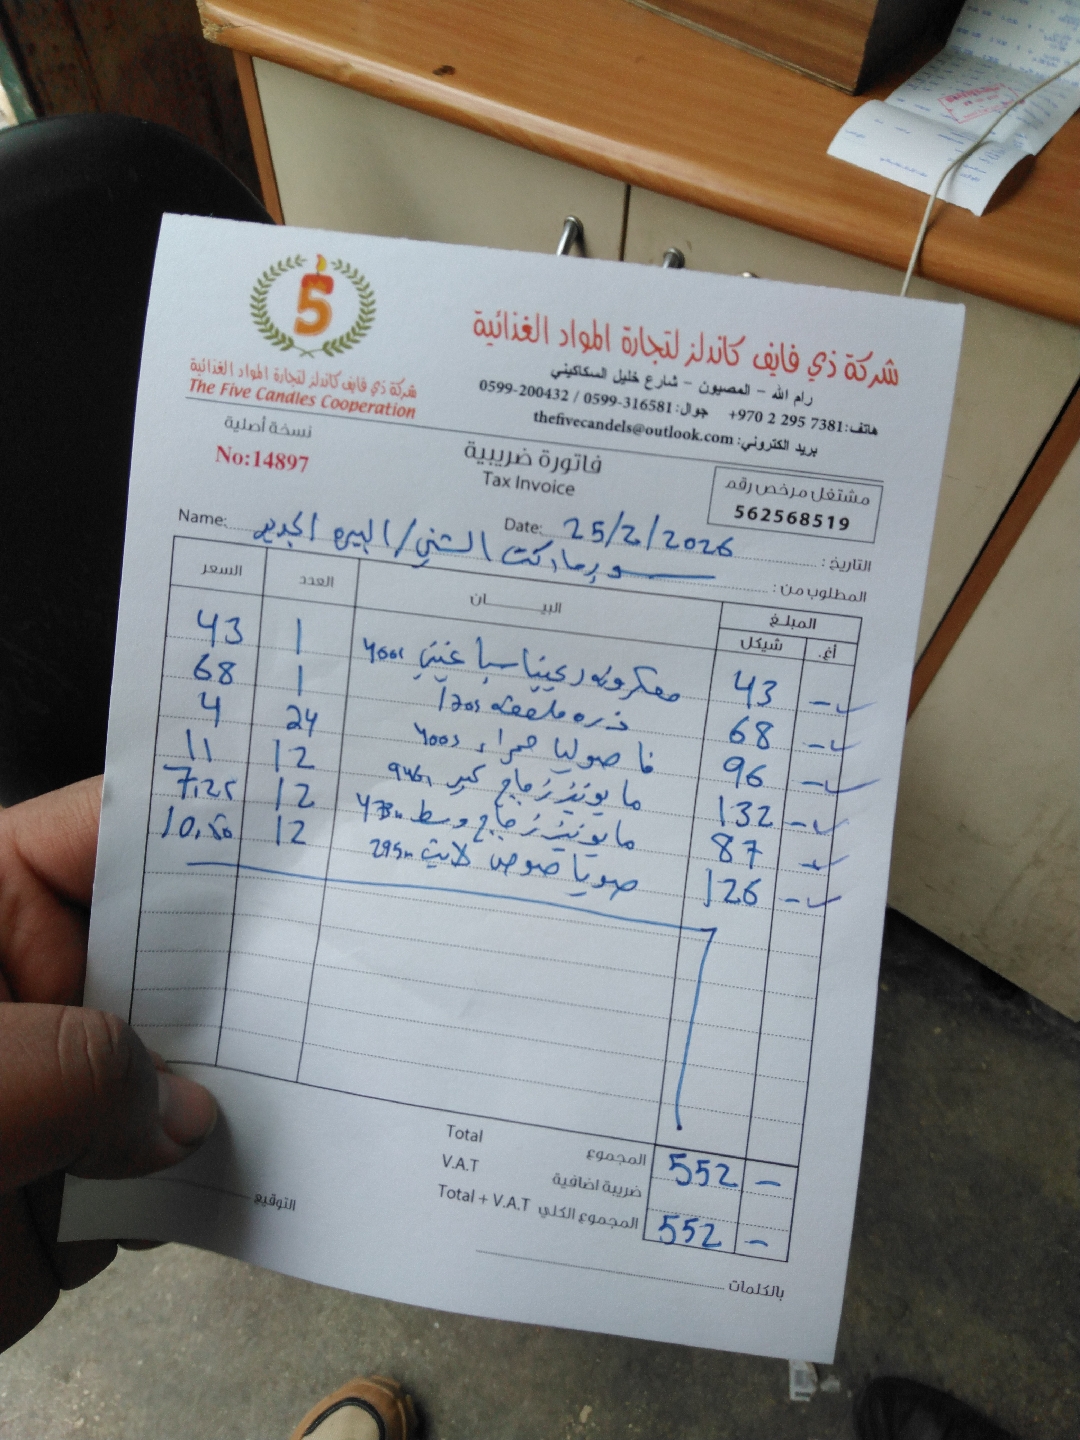 5
شركة ذي فايف كاندلز لتجارة المواد الغذائية
The Five Candles Cooperation
شركة ذي فايف كاندلز لتجارة المواد الغذائية
رام الله - المصيون - شارع خليل السكاكيني
هاتف: +970 2 295 7381 جوال: 0599-316581 / 0599-200432
بريد الكتروني: thefivecandels@outlook.com
نسخة أصلية
No:14897
فاتورة ضريبية
Tax Invoice
مشتغل مرخص رقم
562568519
التاريخ: Date: 25/2/2026
المطلوب من: سوبرماركت الشني/البيره الجديد Name:
المبلغ البيــــان العدد السعر
أغ. شيكل
- 43 معكرونه ريجينا سباغيتي 400 1 43
- 68 ذره ملعقه 1 68
- 96 فاصوليا حمراء 400 24 4
- 132 مايونيز زجاج كبير 946 12 11
- 87 مايونيز زجاج وسط 473 12 7.25
- 126 صويا صوص لايت 295 12 10.50
Total المجموع 552 -
V.A.T ضريبة اضافية
Total + V.A.T المجموع الكلي 552 -
التوقيع
بالكلمات